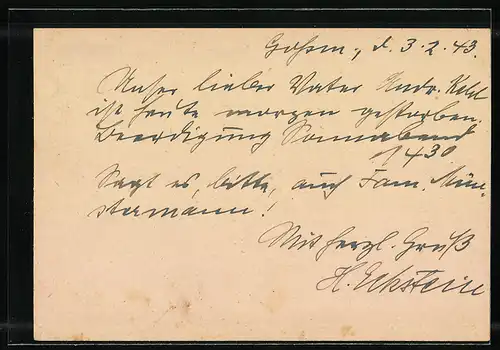 d. 3.2.43.
Unser lieber Vater Andr.
ist heute morgen gestorben.
Beerdigung Sonnabend
1430
Sagt es, bitte, auch Fam. Mün-
stermann!
Mit herzl. Gruß
H. Eckstein